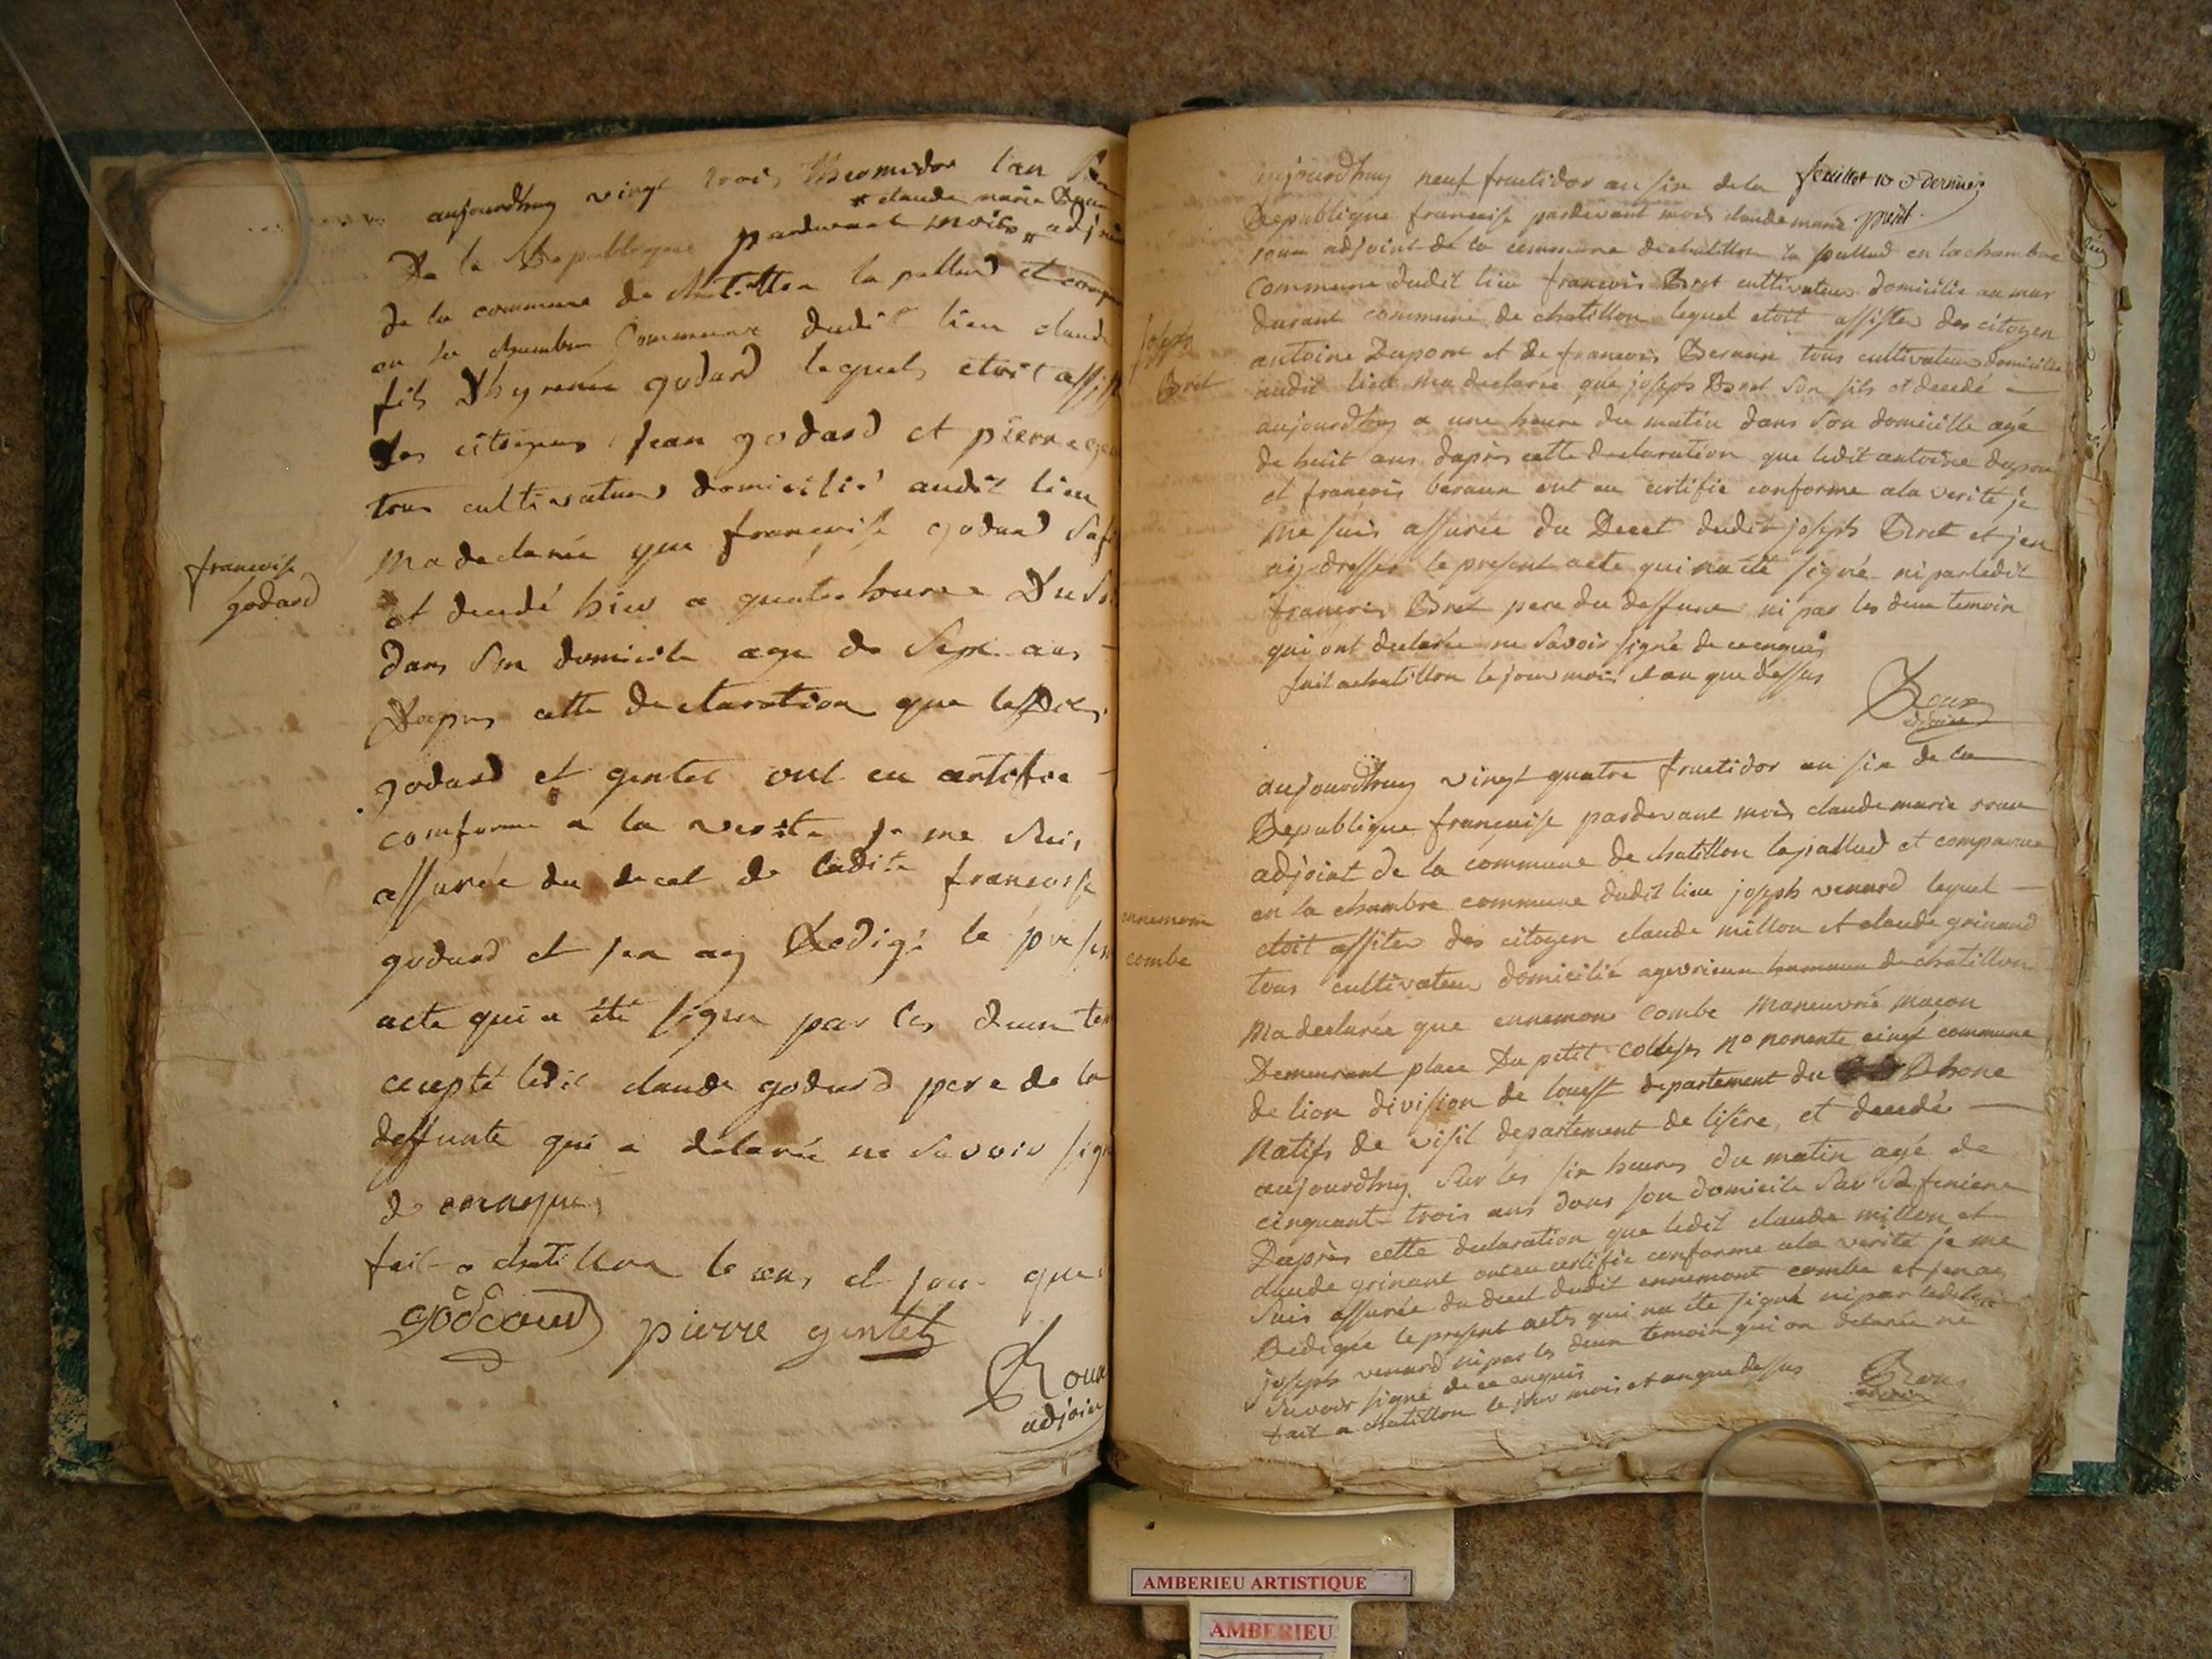 aujourdhuy vingt trois Thermidor l'an
* claude marie
De la Republique pardevant mois * adjoin
de la commune de chatillon la pallud et comp
en la chambre Commune dudit lieu claude
fils Dhyrenée godard lequels etoit assis
des citoyens Jean godard et pierre gen
tous cultivateurs domicilié audit lieu
Ma declarée que francoise godard
et decedé hier a quatre heures Du
dans son domicile age de Sept ans
Dapres cette declaration que lesdits
godard et gentet ont eu certifie
comforme a la verite je me suis
assurée du decet de ladite francoise
godard et jen aij Redigé le presen
acte qui a été signe par les deux tem
cecepté ledit claude godard pere de la
deffunte qui a delarée ne savoir sign
de cenrequis
fait a chatillon le ans et jour que
godcard pierre gentet
Roux
adjoin
francoise
godard
feuillet 10 & dernier
aujourdhuy neuf fructidor an six de la
Republique francaise pardevant mois claude marie
roux adjoint de la commune de chatillon la pallud en la chambre
Commune dudit lieu francois Bret cultivateur domicilié au mas
durant commune de chatillon lequel etoit assistes des citoyen
antoine Dupont et de francois Beraux tous cultivateurs domicilié
audit lieu ma declarée que joseph Bret son fils et decedé
aujourdhuy a une heure du matin dans son domicille agé
de huit ans dapres cette declaration que ledit antoine dupon
et francois beraux ont eu certifie conforme a la verité je
me suis assurée du Decet dudit joseph Bret et jen
aij dressée le present acte qui na été signé ni par ledit
francois Bret pere du deffunt ni par les deux temoin
qui ont declarée ne savoir signé de ce enquis
fait a chatillon le jour mois et an que dessus
Roux
adjoint
joseph
Bret
aujourdhuy vingt quatre fructidor an six de la
Republique francaise pardevant mois claude marie roux
adjoint de la commune de chatillon la pallud et comparue
en la chambre commune dudit lieu joseph venard lequel
etoit assites des citoyen claude millon et claude grinand
tous cultivateur domicilié commune de chatillon
Ma declarée que ennemon combe maneuvré maçon
Demeurant place Du petit colleges no nonente cinq commune
de lion division de louest departement du Rhone
Natifs de visil departement de lisère, et decedé
aujourdhuy sur les six heures du matin agé de
cinquante trois ans dans son domicile
Daprès cette declaration que ledit claude millon et
claude grinant ont eu certifie conforme a la verite je me
suis assurée du decet dudit ennemont combe et jen aij
Redigée le present actes qui na été signé ni par ledit
joseph venard ni par les deux temoin qui on delarée ne
savoir signé de ce enquis
fait a chatillon le jour mois et an que dessus
Roux
adjoint
ennemon
combe
AMBERIEU ARTISTIQUE
AMBERIEU